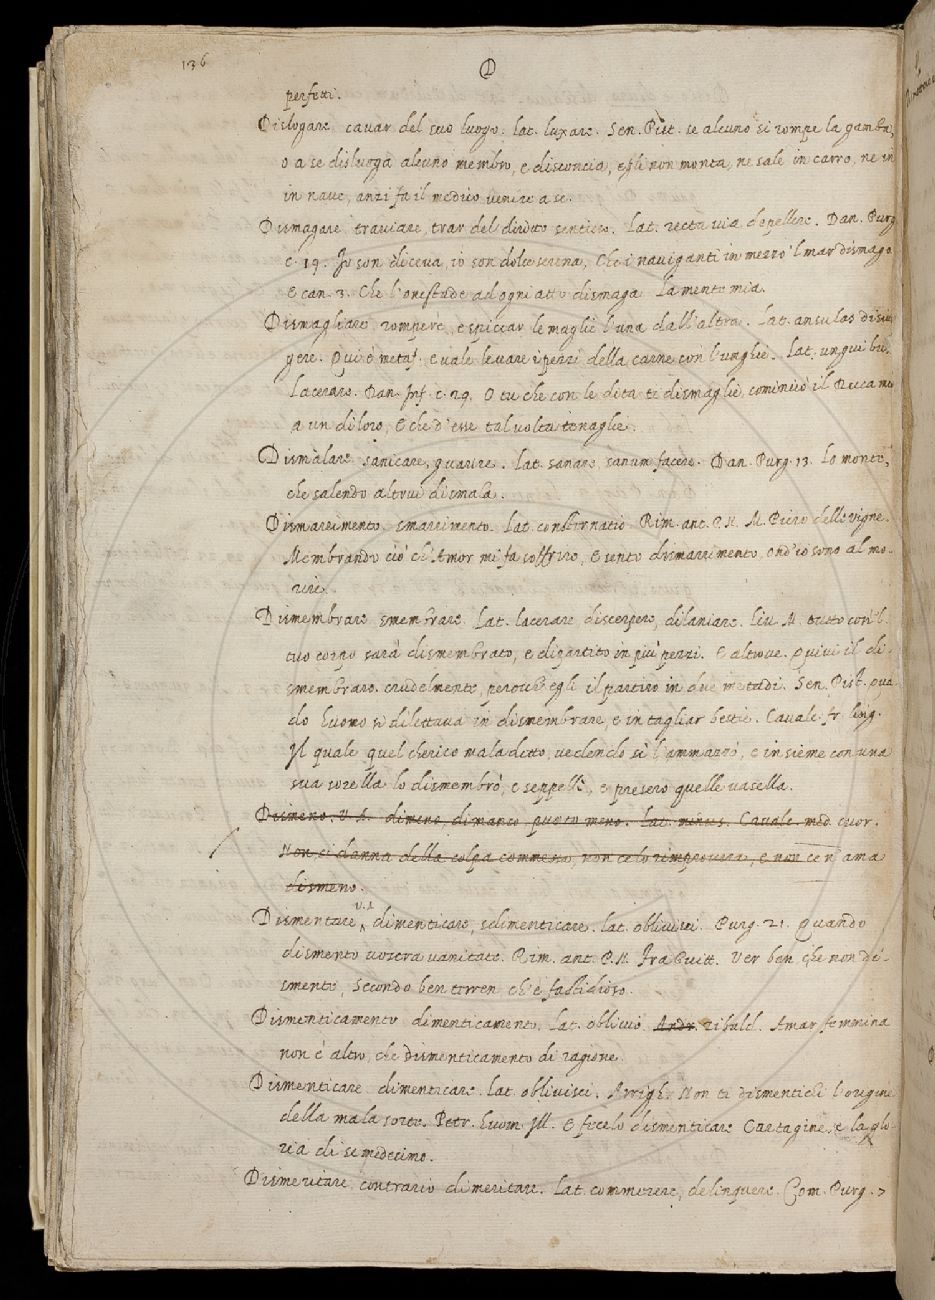 136
D
perfetti.
Dislogare. cavar del suo luogo. lat. luxare. Sen. Pist. se alcuno si rompe la gamba,
o a se disluoga alcuno membro, e disconcia, egli non monta, ne sale in carro, ne in
in nave, anzi fa il medico venire a se.
Dismagare, traviare, trar del diritto sentiero. Lat. recta via depellere. Dan. Purg
c. 19. Io son diceva, io son dolce serena, Che i naviganti in mezzo 'l mar dismago.
E can. 3. Che l'onestade ad ogni atto dismaga. La mente mia.
Dismagliare, rompere, e spiccar le maglie l'una dall'altra. Lat. ansulas disiun
gere. Qui è metaf. e vale levare i pezzi della carne con l'unghie. Lat. unguibus
lacerare. Dan. Inf. c. 29. O tu che con le dita ti dismaglie, cominciò il Duca mio
a un di loro, E che d'esse talvolta tenaglie.
Dismalare sanicare, guarire. lat. sanare, sanum facere. Dan. Purg. 13. Lo monte,
che salendo altrui dismala.
Dismarrimento. smarrimento. Lat. consternatio. Rim. ant. P. N. M. Piero delle vigne.
Membrando ciò ch'Amor mi fa soffrire, E sento dismarrimento, ond'io sono al mo-
rire.
Dismembrare smembrare. Lat. lacerare, discerpere, dilaniare. Liv. M. tutto cosi 'l
tuo corpo sarà dismembrato, e dipartito in più pezzi. E altrove. Quivi il di-
smembraro. crudelmente, perochè egli il partiro in due metadi. Sen. Pist. qua
do huomo si dilettava in dismembrare, e in tagliar bestie. Cavalc. fr. ling.
Il quale quel cherico maladetto, vedendo sì l'ammazzò, e insieme con una
sua sorella lo dismembrò, e seppellì, e presero quelle vasella.
Dismeno. V.A. dimeno, dimanco, questo meno. Lat. minus. Cavalc. med. cuor.
Non ci danna della colpa commessa, non celo rimprovera, e non cen' ama
dismeno.
Dismentare V.A. dimenticare, sdimenticare. lat. oblivisci. Purg. 21. Quando
dismento nostra vanitate. Rim. ant. P. N. Fra Guitt. Ver ben che non di-
smento, Secondo ben terren ch'è fastidioso.
Dismenticamento dimenticamento. lat. oblivio. Andr. ribald. Amar femmina
non è altro, che dismenticamento di ragione.
Dismenticare dimenticare. lat. oblivisci. Arrigh. Non ti dismentichi l'origine
della mala sorte. Petr. huom Ill. E fecelo dismenticare Cartagine, e la glo-
ria di se medesimo.
Dismeritare. contrario di meritare. Lat. commerere, delinquere. Com. Purg. 7